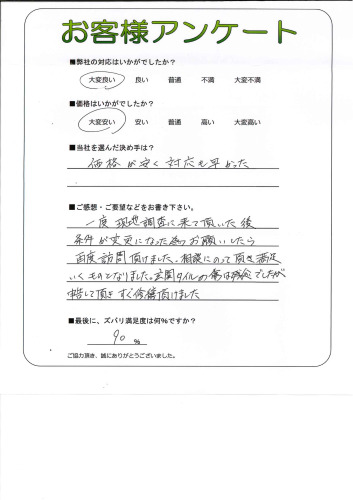 お客様アンケート
■弊社の対応はいかがでしたか?
大変良い 良い 普通 不満 大変不満
■価格はいかがでしたか?
大変安い 安い 普通 高い 大変高い
■当社を選んだ決め手は?
価格が安く対応も早かった
■ご感想・ご要望などをお書き下さい。
一度現地調査に来て頂いた後
条件が変更になった為のお願いしたら
再度訪問頂けました。相談にのって頂き満足
いくものとなりました。玄関タイルの傷は残念でしたが
申告して頂きすぐ修繕頂けました
■最後に、ズバリ満足度は何%ですか?
90 %
ご協力頂き、誠にありがとうございました。